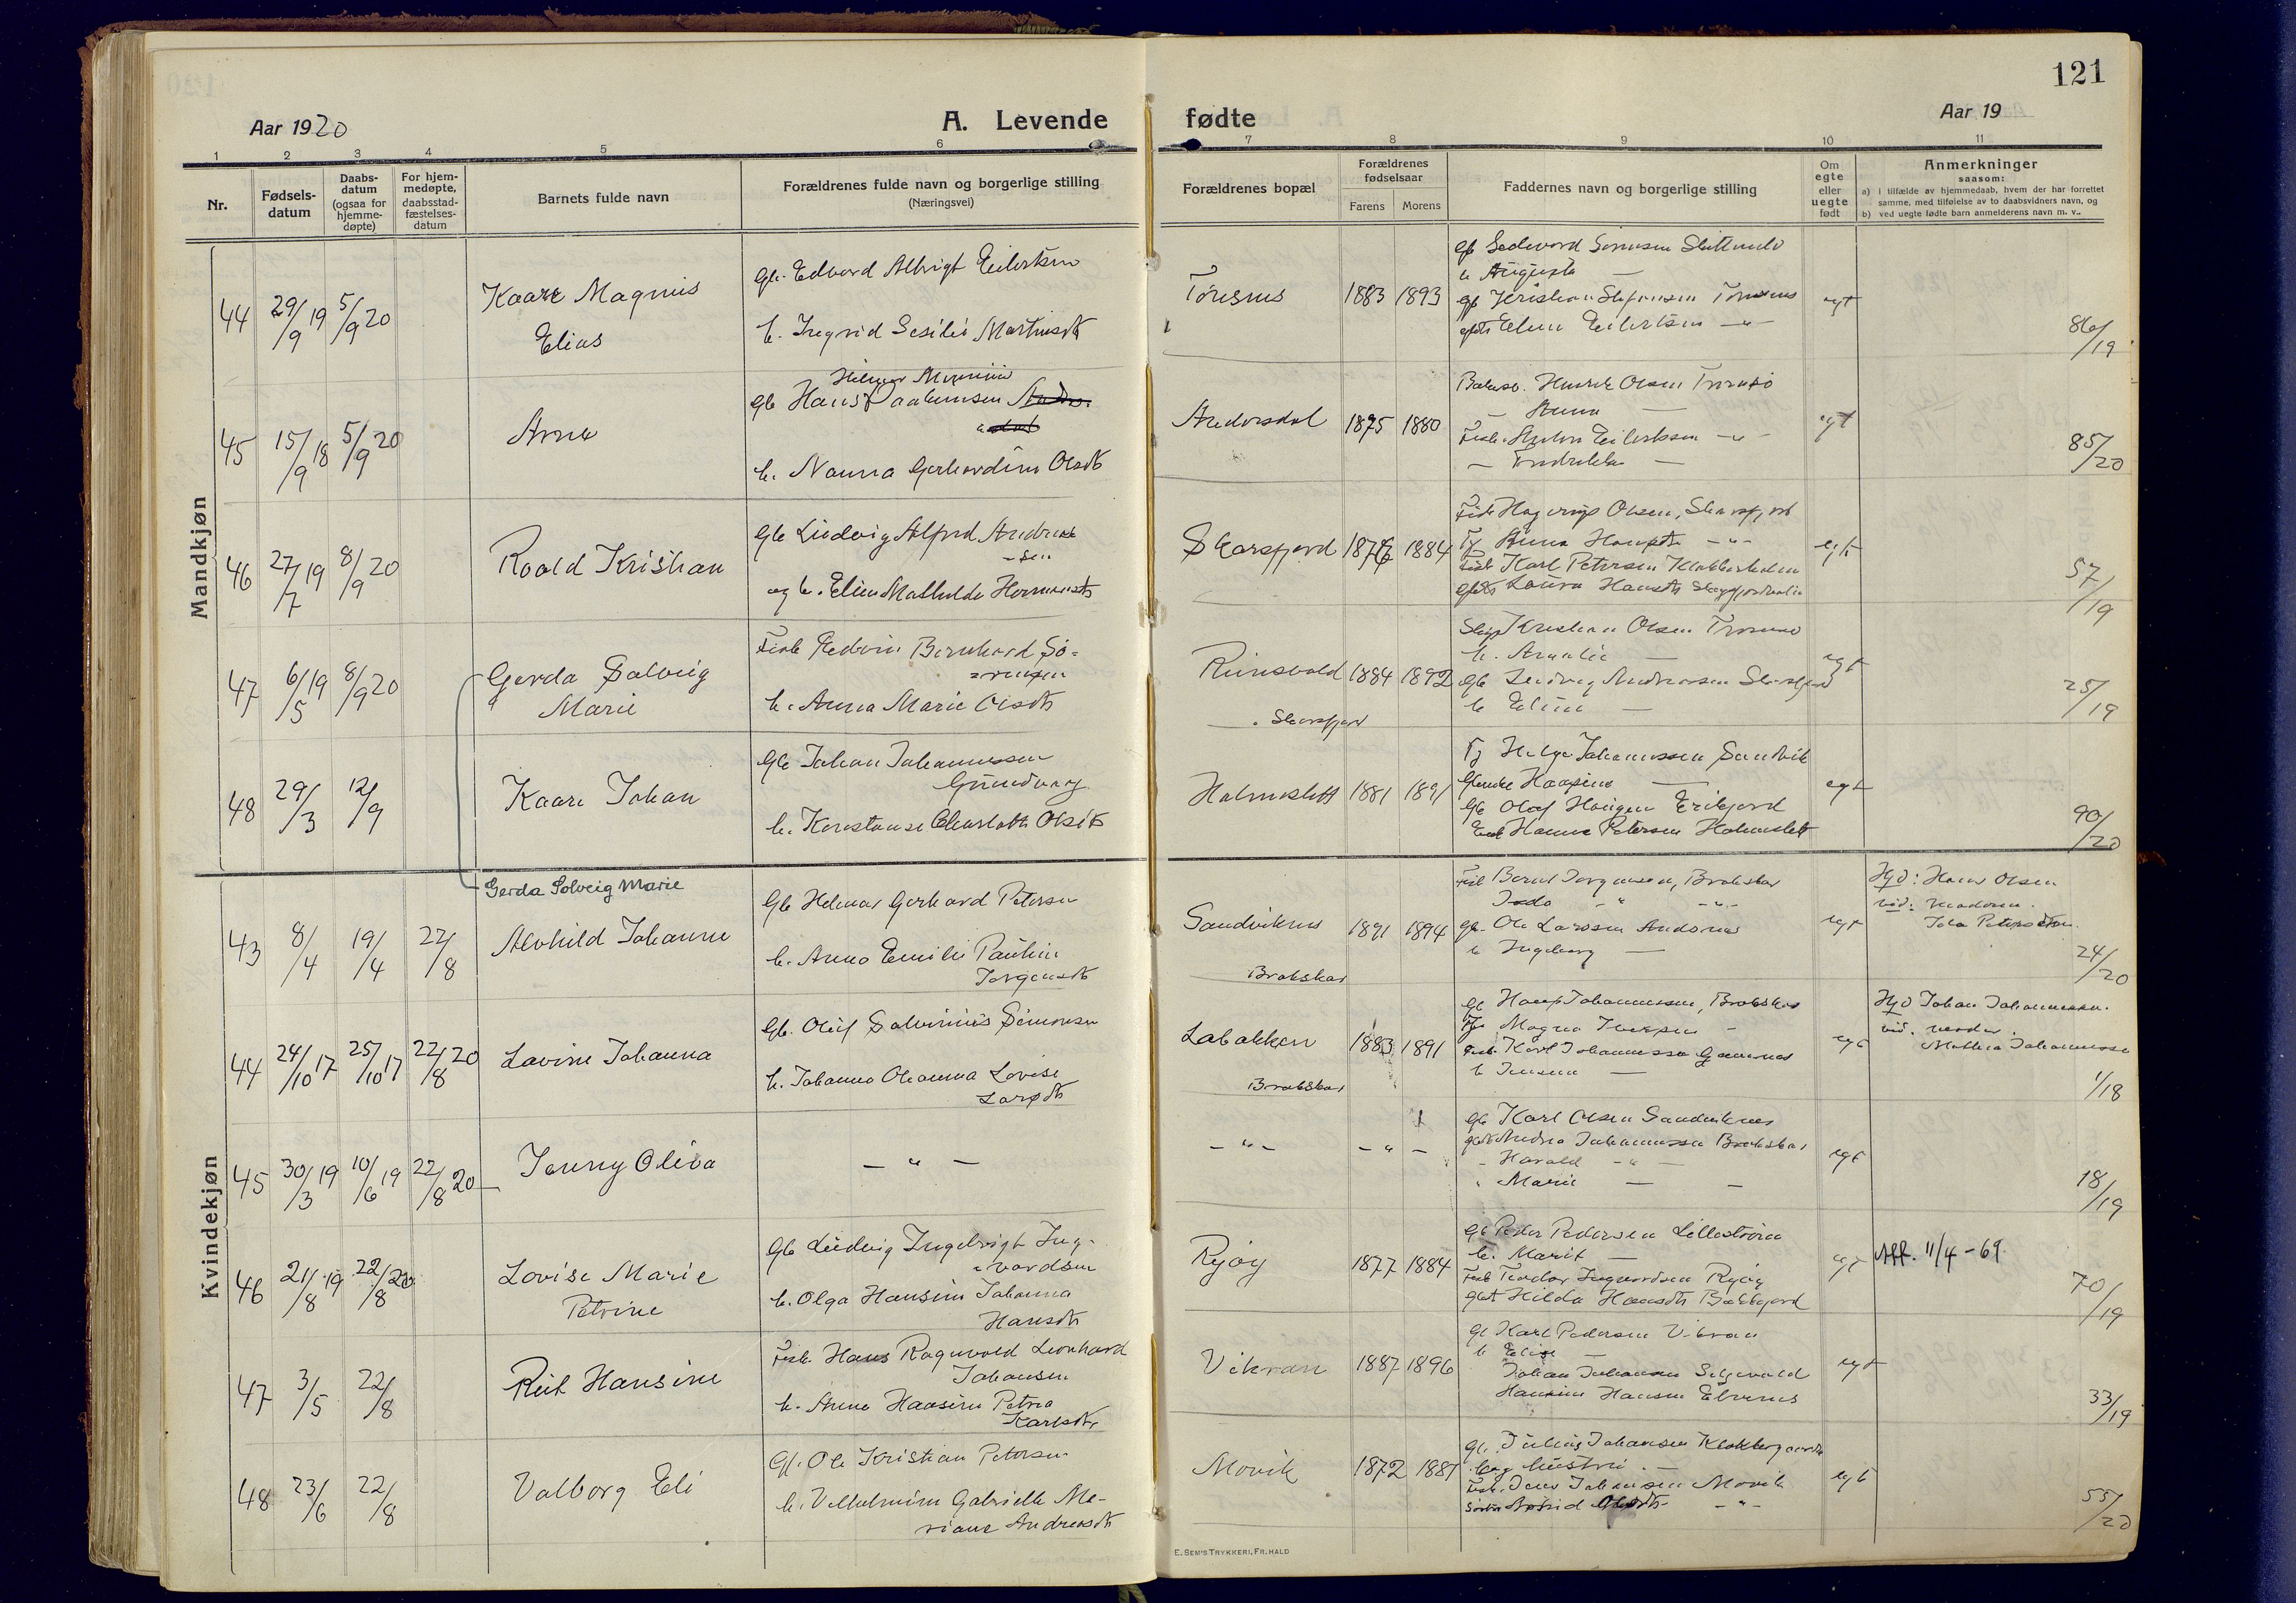 121
Aar 1920
A. Levende fødte
Aar 19
1 2 3 4 5 6 7 8 9 10 11
Nr.
Fødsels-
datum
Daabs-
datum
(ogsaa for
hjemme-
døpte)
For hjem-
medøpte,
daabsstad-
fæstelses-
datum
Barnets fulde navn
Forældrenes fulde navn og borgerlige stilling
(Næringsvei)
Forældrenes bopæl
Forældrenes
fødselsaar
Farens Morens
Faddernes navn og borgerlige stilling
Om
egte
eller
uegte
født
Anmerkninger
saasom:
a) i tilfælde av hjemmedaab, hvem der har forrettet
samme, med tilføielse av to daabsvidners navn, og
b) ved uegte fødte barn anmelderens navn m. v..
Mandkjøn
44 29/9 19 5/9 20
Kaare Magnus
Elias
Gb. Edvard Albrigt Eilertsen
h. Ingrid Sesilie Martinsdt
1883 1893
egt
86/19
45 15/9 18 5/9 20
Arne
Gb Hans
h. Nanna Gerhardine Olsdt
Andersdal 1875 1880
Henrik Olsen Tromsø
Anna
egt
85/20
46 27/7 19 8/9 20
Roald Kristian
Gb Ludvig Alfred Andreas
sen
og h. Eline Mathilde Hermansdt
Skarsfjord 1876 1884
Hagerup Olsen, Skarsfjord
Karl Petersen
Laura Hansdt
egt
57/19
47 6/5 19 8/9 20
Gerda Solveig
Marie
Fisk Pedvin Bernhard Sø-
rensen
h. Anna Marie Olsdt
Skarsfjord
1884 1892
Kristian Olsen Tromsø
h. Amalie
Ludvig Andreasen Skarsfjord
h Eline
egt
25/19
48 29/3 12/9
Kaare Johan
Gb Johan Johannessen
Grundvaag
h. Konstanse Charlotte Olsdt
Holmeslett 1881 1891
Helge Johannessen Sandvik
Gb Olaf Haugen Erikjord
Hanna Petersen Holmeslett
egt
90/20
Kvindekjøn
Gerda Solveig Marie
43 8/4 19/4 22/8
Alvhild Johanne
Gb Helmar Gerhard Petersen
h. Anna Emilie Pauline
Jørgensdt
Sandviknes
Brokskar
1891 1894
Bernt Jørgensen, Brokskar
Ole Larssen Andsnes
h Ingeborg
egt
Hjd: Hans Olsen
vid: moderen.
24/20
44 24/10 17 25/10 17 22/8 20
Lavine Johanna
Gb. Oluf Salvinius Simonsen
h. Johanna Oleanna Lovise
Larsdt
Labakken
Brokskar
1883 1891
Johannessen, Brokskar
Karl Johannessen
h Jensine
egt
Hjd Johan Johannessen.
vid. moder.
Mathea Johannessen
1/18
45 30/3 19 10/6 19 22/8 20
Jenny Oliva
— " —
— " —
— " —
Gb Karl Olsen Sandviknes
Andrea Johannessen Brokskar
Harald
Marie
egt
18/19
46 21/8 19 22/8 20
Lovise Marie
Petrine
Gb Ludvig Ingebrigt Ing-
vardsen
h. Olga Hansine Johanna
Hansdt
Ryøy
1877 1884
Gb Peder Pedersen Lillestrøm
h. Marit
Fisk Teodor Ingvardsen Ryøy
Hilda Hansdt Bakkejord
egt
Att. 11/4 - 69.
70/19
47 3/5 22/8
Rut Hansine
Fisk. Hans Ragnvald Leonhard
Johansen
h. Anna Hansine Petrea
Karlsdt
Vikran
1887 1896
Gb Karl Pedersen Vikran
h Elise
Johan Johansen Seljevold
Hansine Hansen Elvenes
egt
33/19
48 23/6 22/8
Valborg Eli
Gb. Ole Kristian Petersen
h. Vilhelmine Gabrielle Ma-
riane Andreasdt
Movik
1872 1881
Gb. Julius Johansen
og hustru
Fisk. Jens Johansen Movik
Astrid Olsdt
egt
55/20
E. SEM'S TRYKKERI, FR.HALD